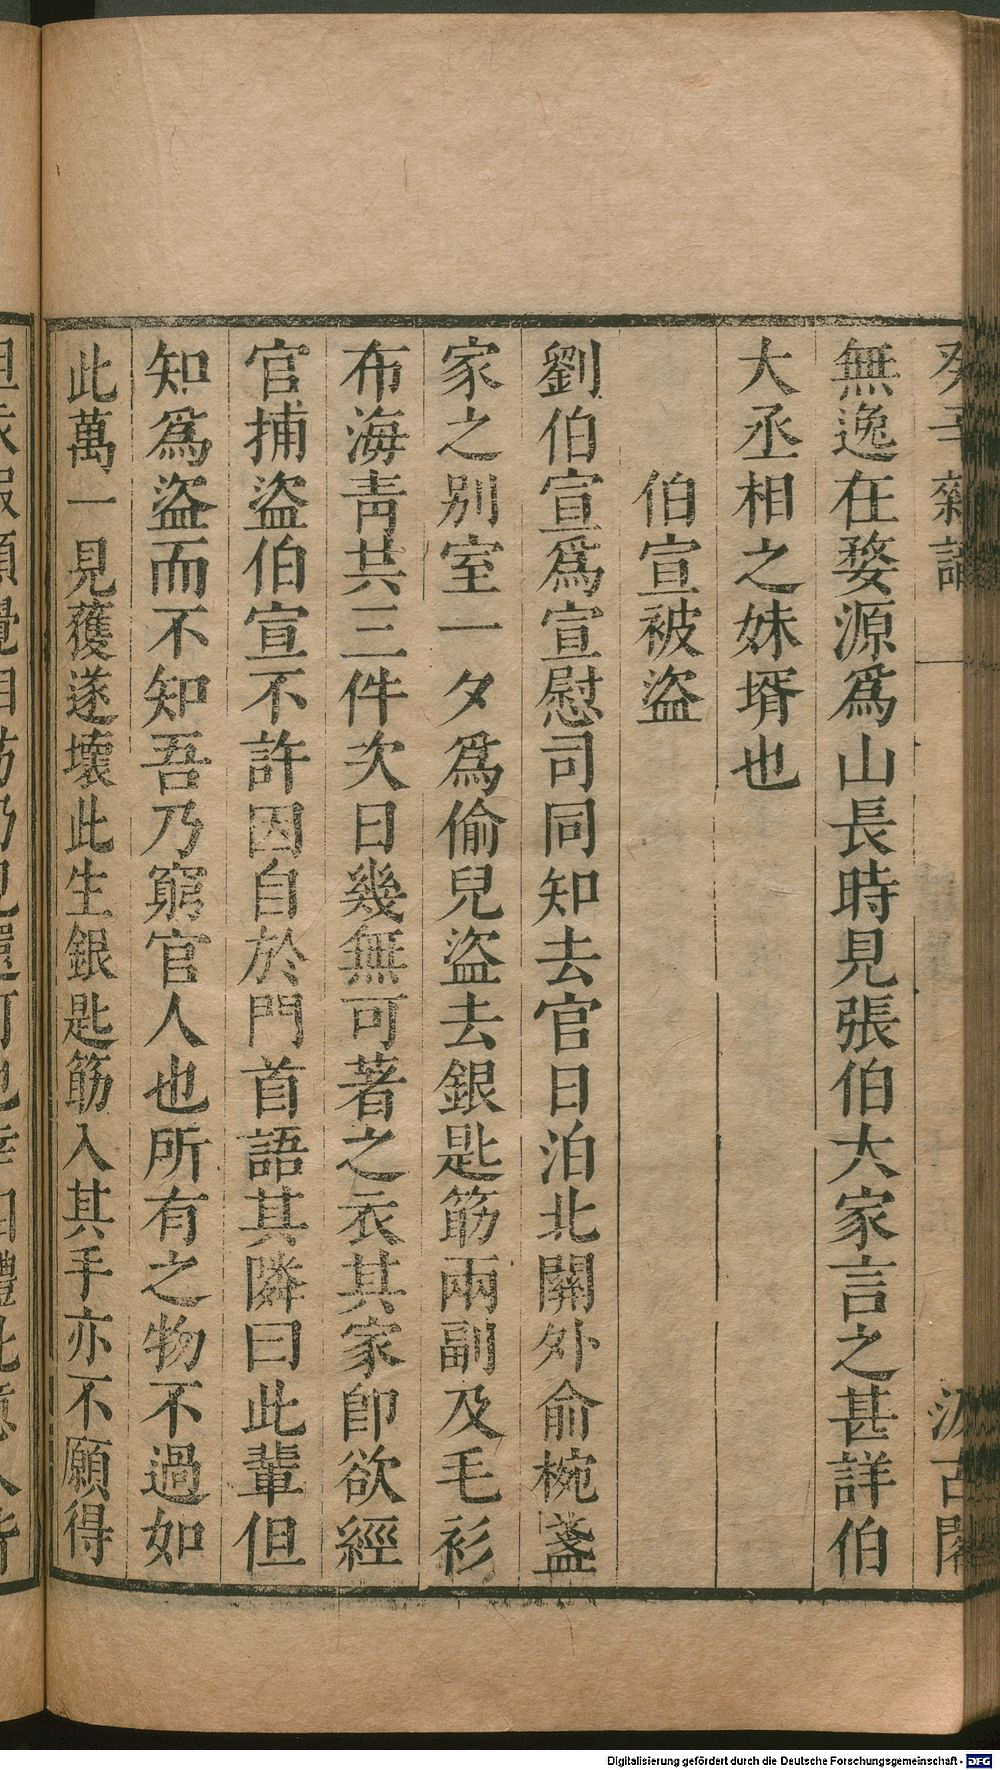 癸辛雜識 一 汲古閣
無逸在婺源爲山長時見張伯大家言之甚詳伯
大丞相之妹壻也
伯宣被盜
劉伯宣爲宣慰司同知去官日泊北關外俞椀盞
家之别室一夕爲偷兒盜去銀匙筯兩副及毛衫
布海靑共三件次日幾無可著之衣其家卽欲經
官捕盜伯宣不許因自於門首語其隣曰此輩但
知爲盜而不知吾乃窮官人也所有之物不過如
此萬一見獲遂壞此生銀匙筯入其手亦不願得
Digitalisierung gefördert durch die Deutsche Forschungsgemeinschaft - DFG